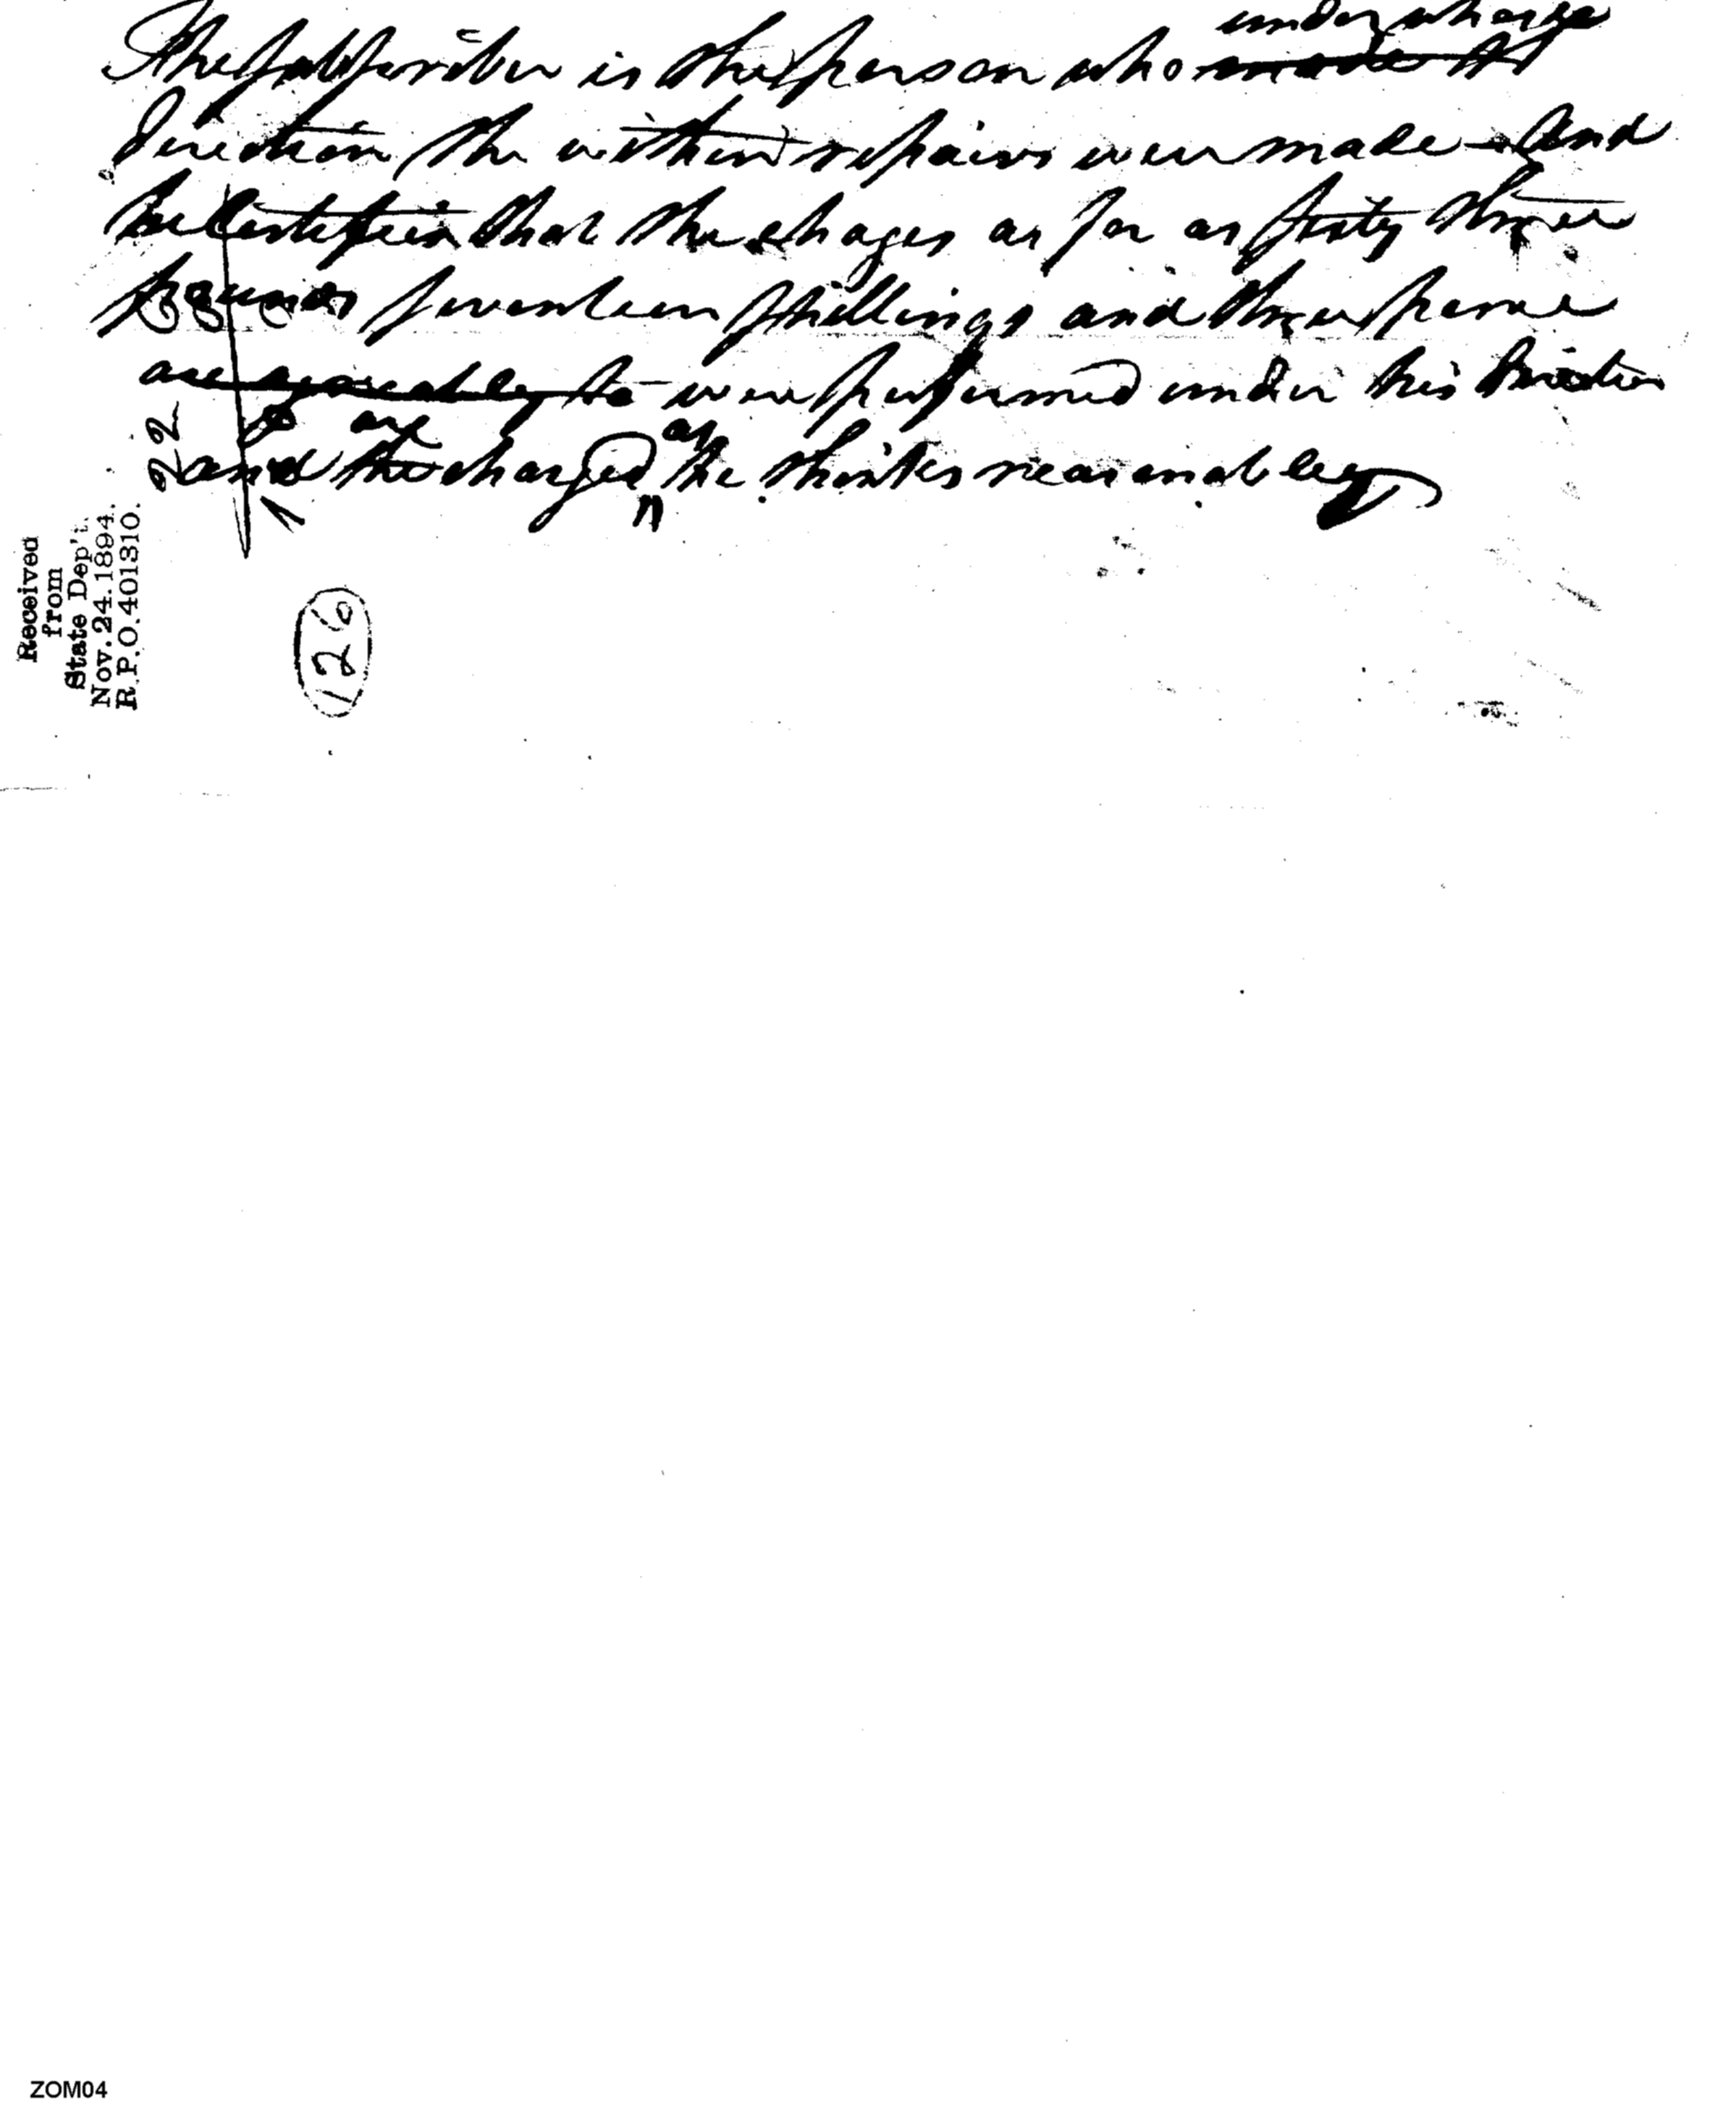 under whose
The Subscriber is the person who made the
direction the within repairs were made - and
he certifies that the chages as far as forty three
pounds seventeen shillings and three pence
are reasonable, the were performed under his direction
are as
and the charged he thinks reasonable
22
Received
from
State Dep't.
Nov. 24. 1894.
R.P.O. 401310.
126
ZOM04